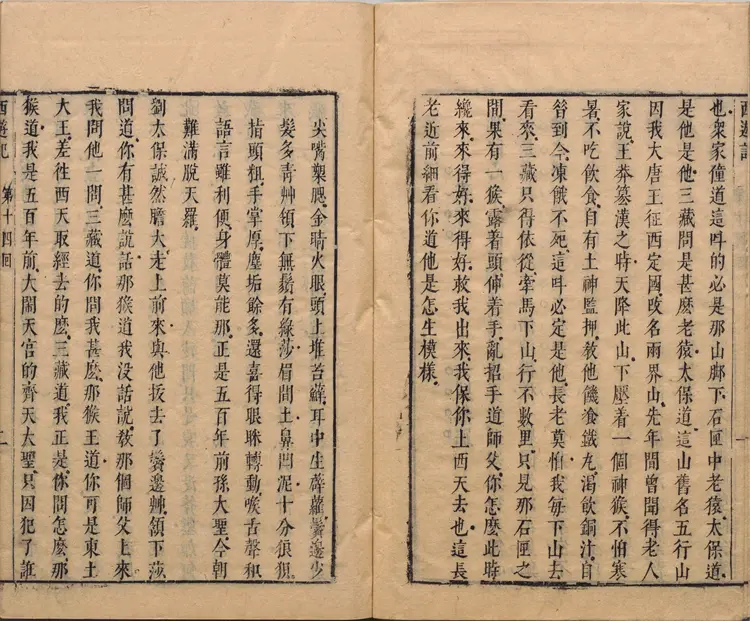 西遊記
也衆家僮道這叫的必是那山脚下石匣中老猿太保道
是他是他三藏問是甚麽老猿太保道這山舊名五行山
因我大唐王征西定國改名兩界山先年間曾聞得老人
家說王莽簒漢之時天降此山下壓着一個神猴不怕寒
暑不吃飲食自有土神監押教他饑飡鐵丸渴飲銅汁自
昝到今凍餓不死這叫必定是他長老莫怕我每下山去
看來三藏只得依從牽馬下山行不數里只見那石匣之
間果有一猴露着頭伸着手亂招手道師父你怎麽此時
纔來來得好來得好救我出來我保你上西天去也這長
老近前細看你道他是怎生模樣
尖嘴縮腮金睛火眼頭上堆苔蘚耳中生薜蘿鬢邊少
髮多青艸頷下無鬚有綠莎眉間土鼻凹泥十分狼狽
指頭粗手掌厚塵垢餘多還喜得眼眸轉動喉舌聲和
語言雖利便身體莫能那正是五百年前孫大聖今朝
難滿脫天羅
劉太保誠然膽大走上前來與他拔去了鬢邊艸頷下莎
問道你有甚麽說話那猴道我没話說教那個師父上來
我問他一問三藏道你問我甚麽那猴王道你可是東土
大王差往西天取經去的麽三藏道我正是你問怎麽那
猴道我是五百年前大鬧天宮的齊天大聖只因犯了誰
西遊記 第十四回 二